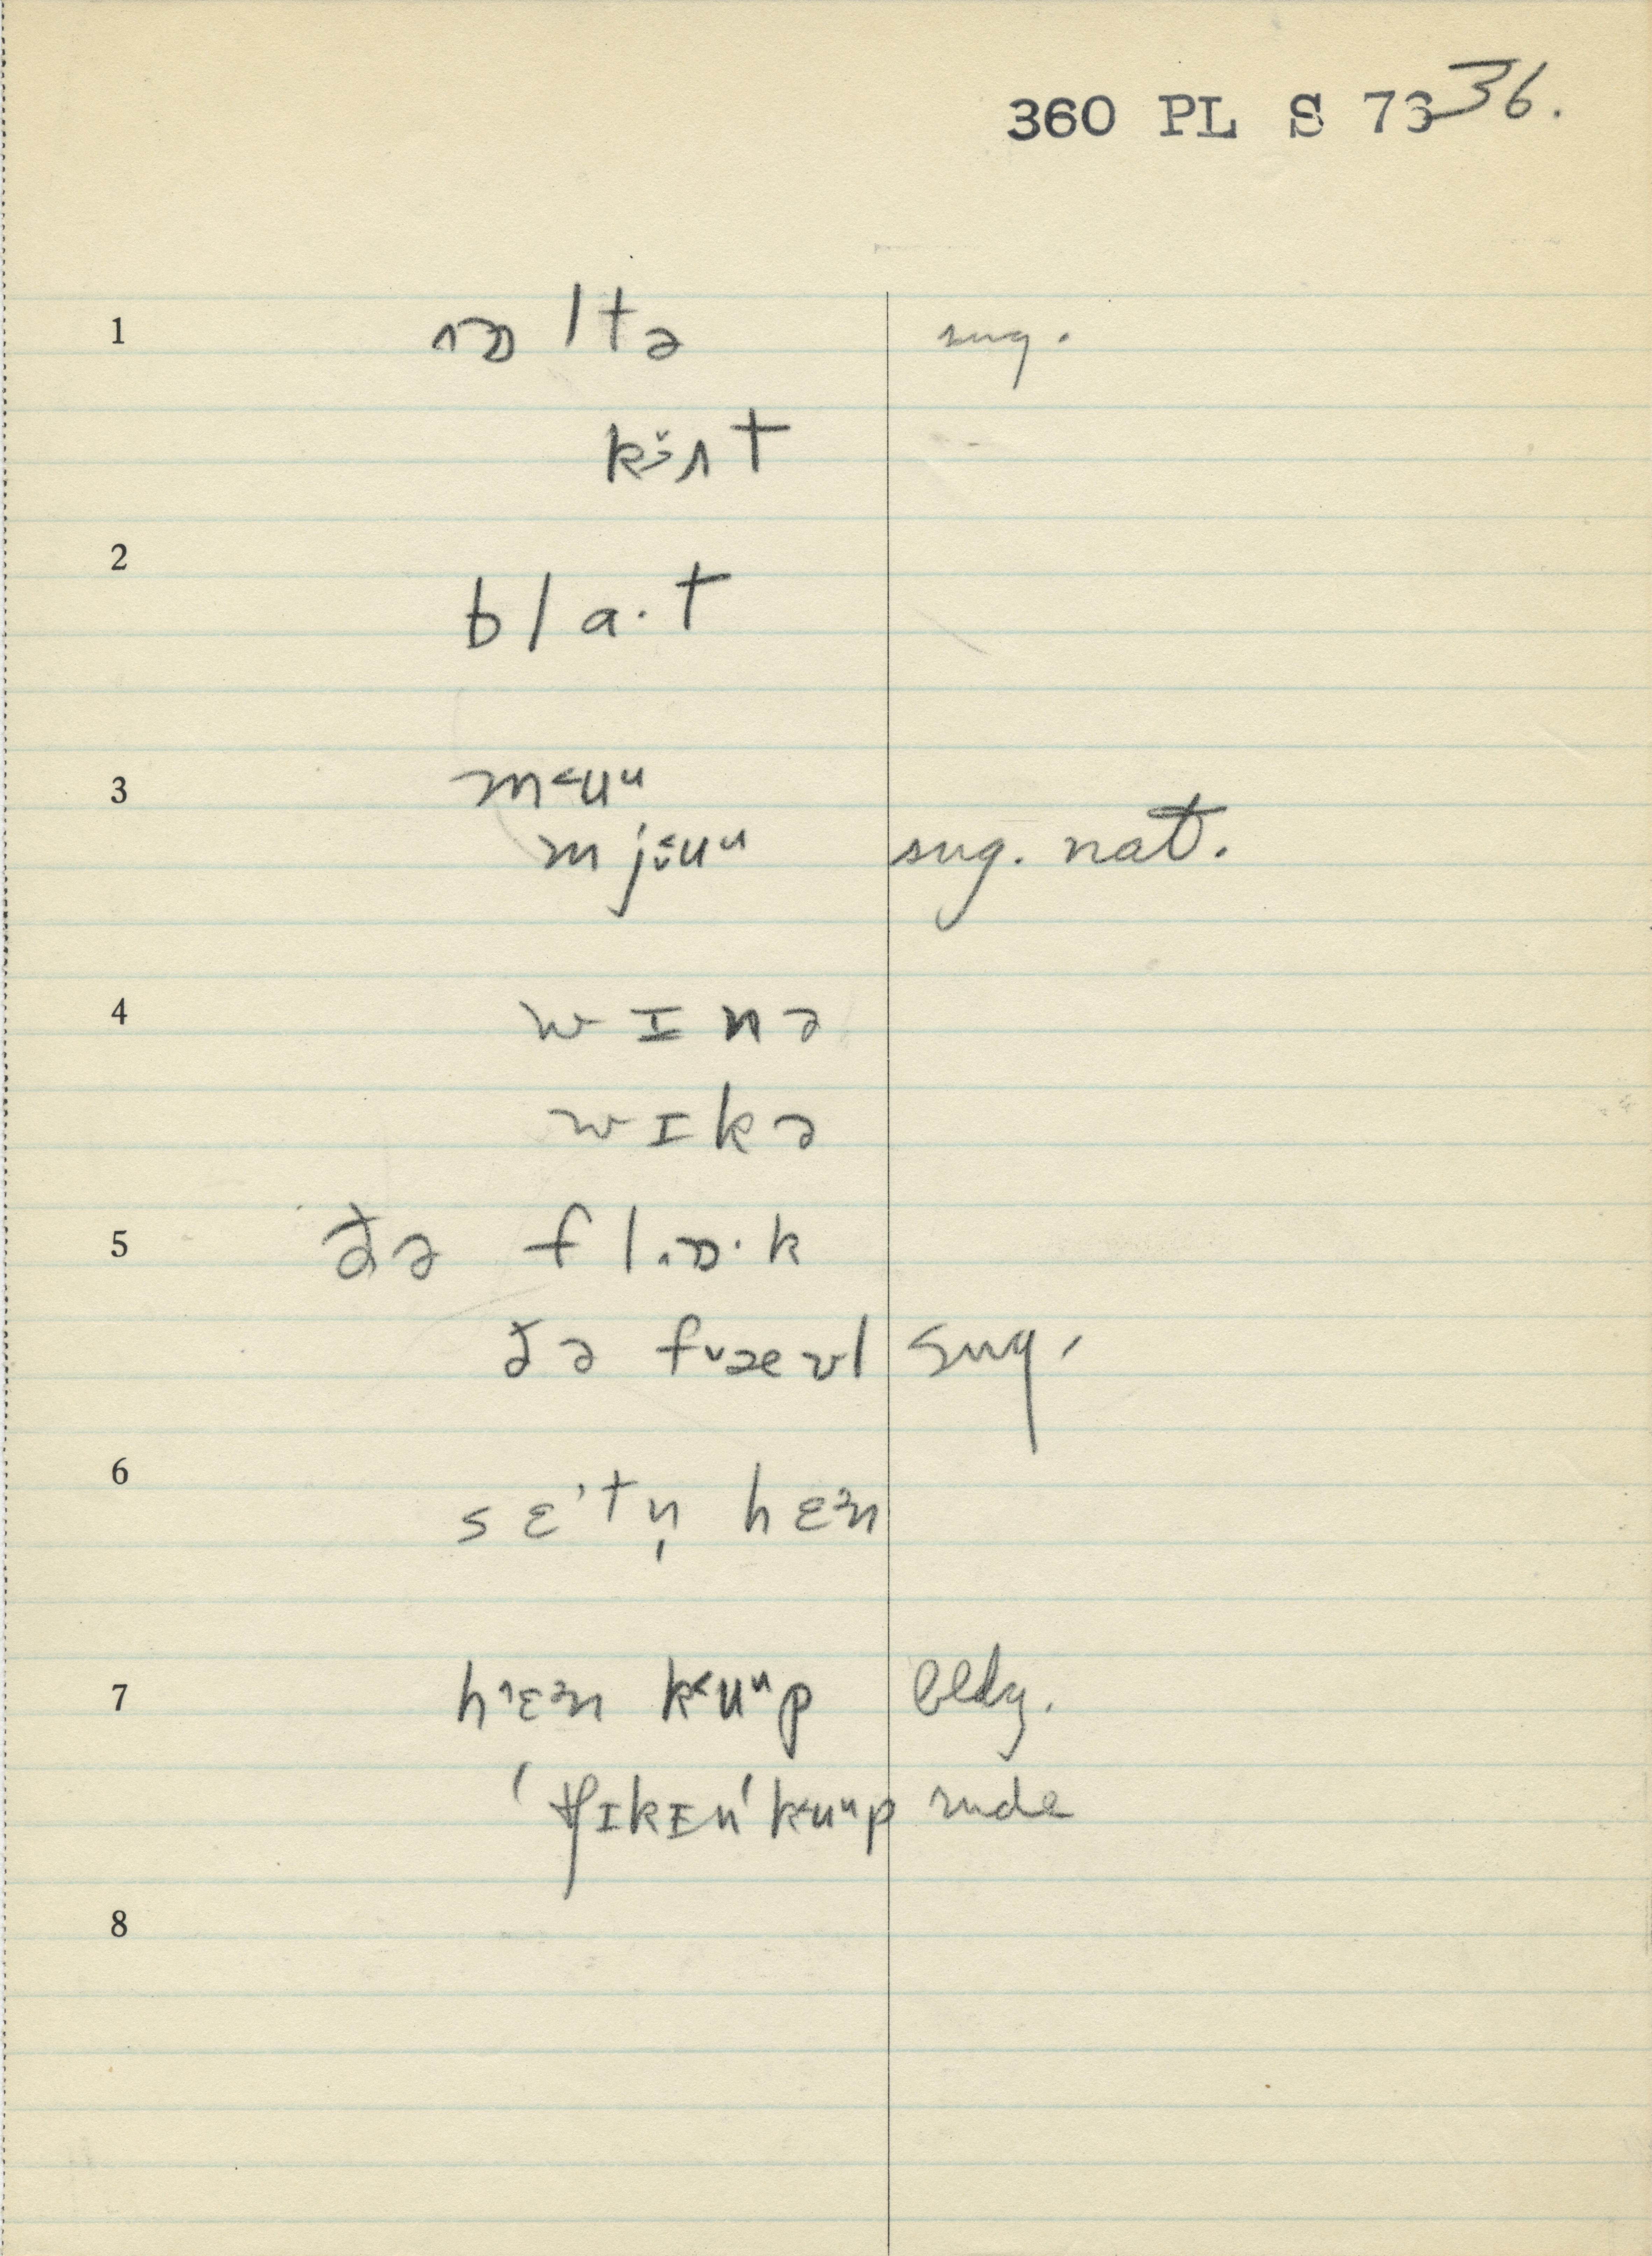 360 PL S 73 36.
1 ɒltə sug.
2 bla·t
3 m˂uᵘ
mjüuᵘ sug. nat.
4 wɪnə
wɪkə
5 ðə flɒ·k
ðə fᵛæʊl sug.
6 sɛ'tn̩ hɛᵊn
7 hɛᵊn k˂uᵘp bldg.
'tʃɪkɪn'k˂uᵘp rude
8